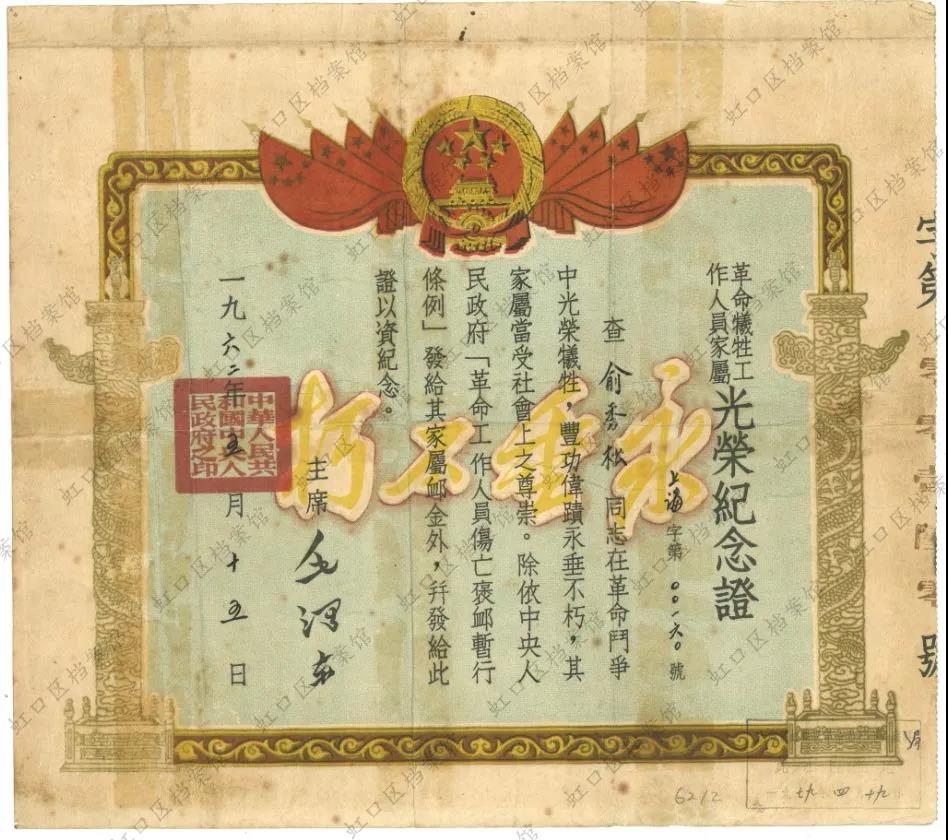 字第 零零壹陸零 號
革命犧牲工
作人員家屬
光榮紀念證
上海字第〇〇一六〇號
查 俞秀松 同志在革命鬥爭
中光榮犧牲,豐功偉蹟永垂不朽,其
家屬當受社會上之尊崇。除依中央人
民政府「革命工作人員傷亡褒卹暫行
條例」發給其家屬卹金外,幷發給此
證以資紀念。
主席 毛澤東
一九六二年五月十五日
中華人民共
和國中央人
民政府之印
永垂不朽
6212
虹口区档案馆